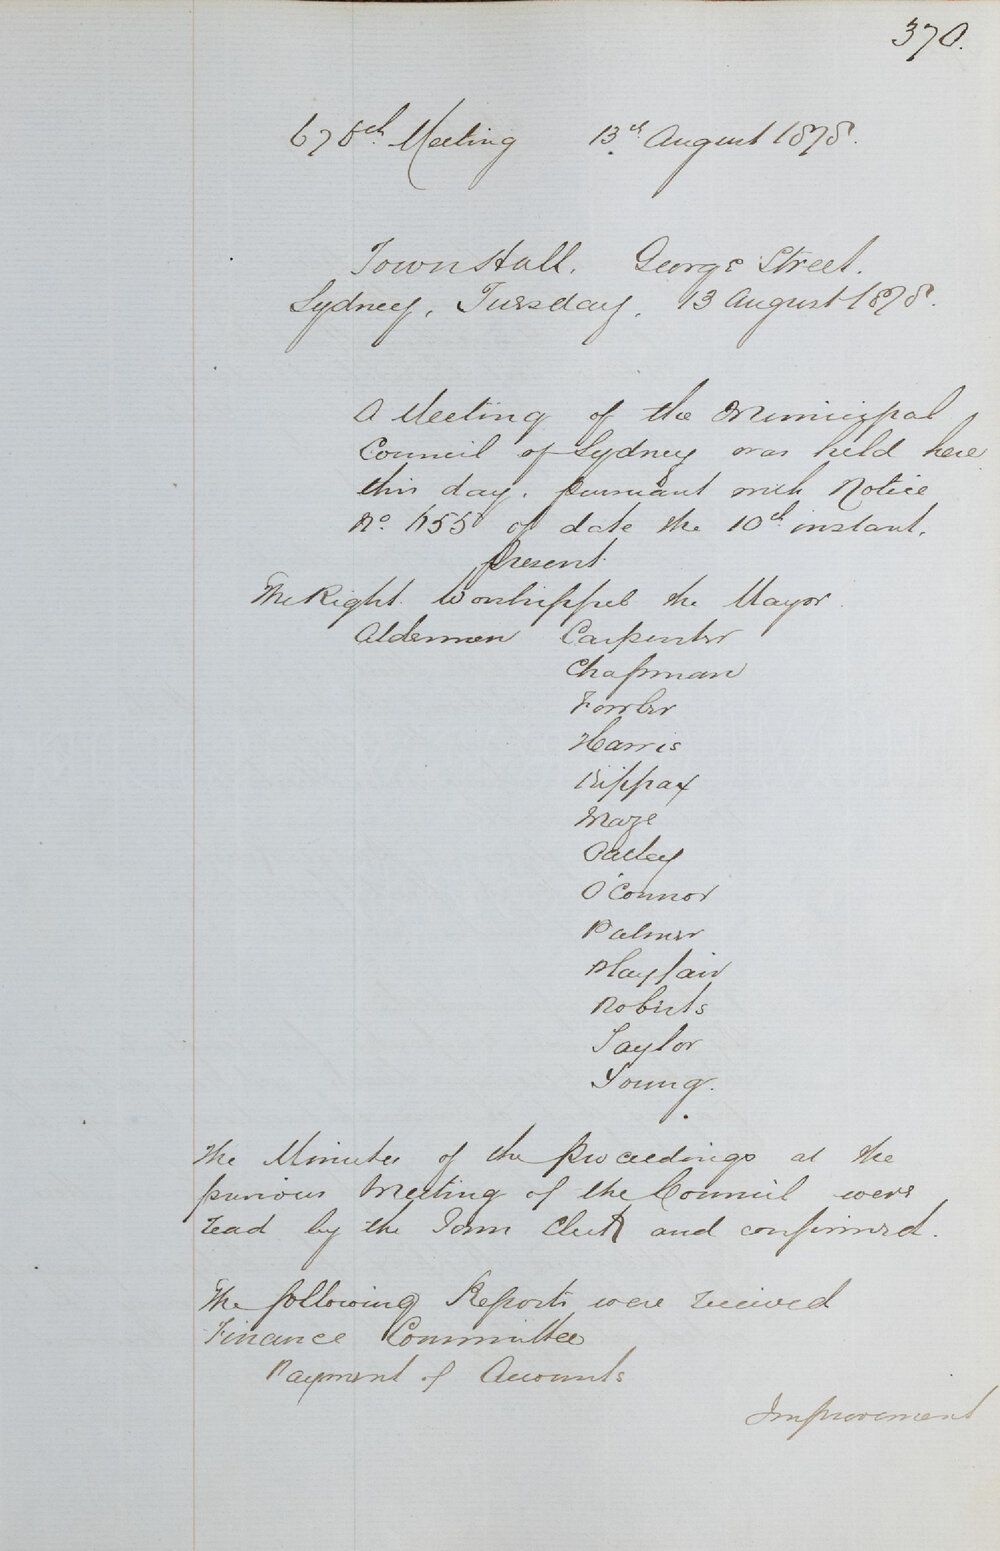 370.
678th Meeting 13th August 1878.
Town Hall. George Street.
Sydney, Tuesday, 13 August 1878.
A Meeting of the Municipal
Council of Sydney was held here
this day, pursuant with Notice
No. of date the 10th instant.
Present
The Right Worshippel the Mayor
Aldermen Carpenter
Chapman
Fowler
Harris
Kippax
Maze
Oatley
O'Connor
Palmer
Playfair
Roberts
Taylor
Young.
The Minutes of the Proceedings at the
previous Meeting of the Council were
read by the Town Clerk and confirmed.
The following Reports were received
Finance Committee
Payment of Accounts
Improvement